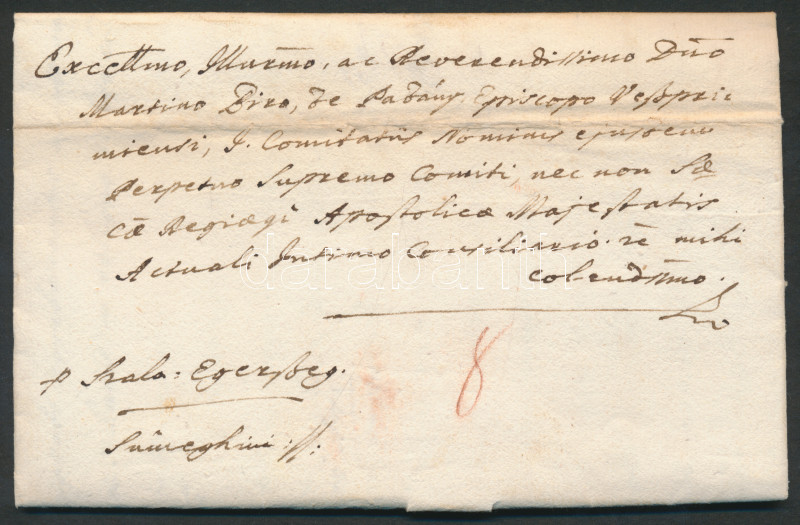 Excellmo, Illurmo, ac Reverendissimo Dno
Martino Biro, de Padány Episcopo Veszpri=
miensi, I. Comitatus Nominis ejusdem
Perpetuo Supremo Comiti, nec non Sa=
cæ Regiæ Apostolicæ Majestatis
Actuali Intimo Consiliario mihi
colendmo.
8
p Szala=Egerszeg.
Sümeghini
darabanth